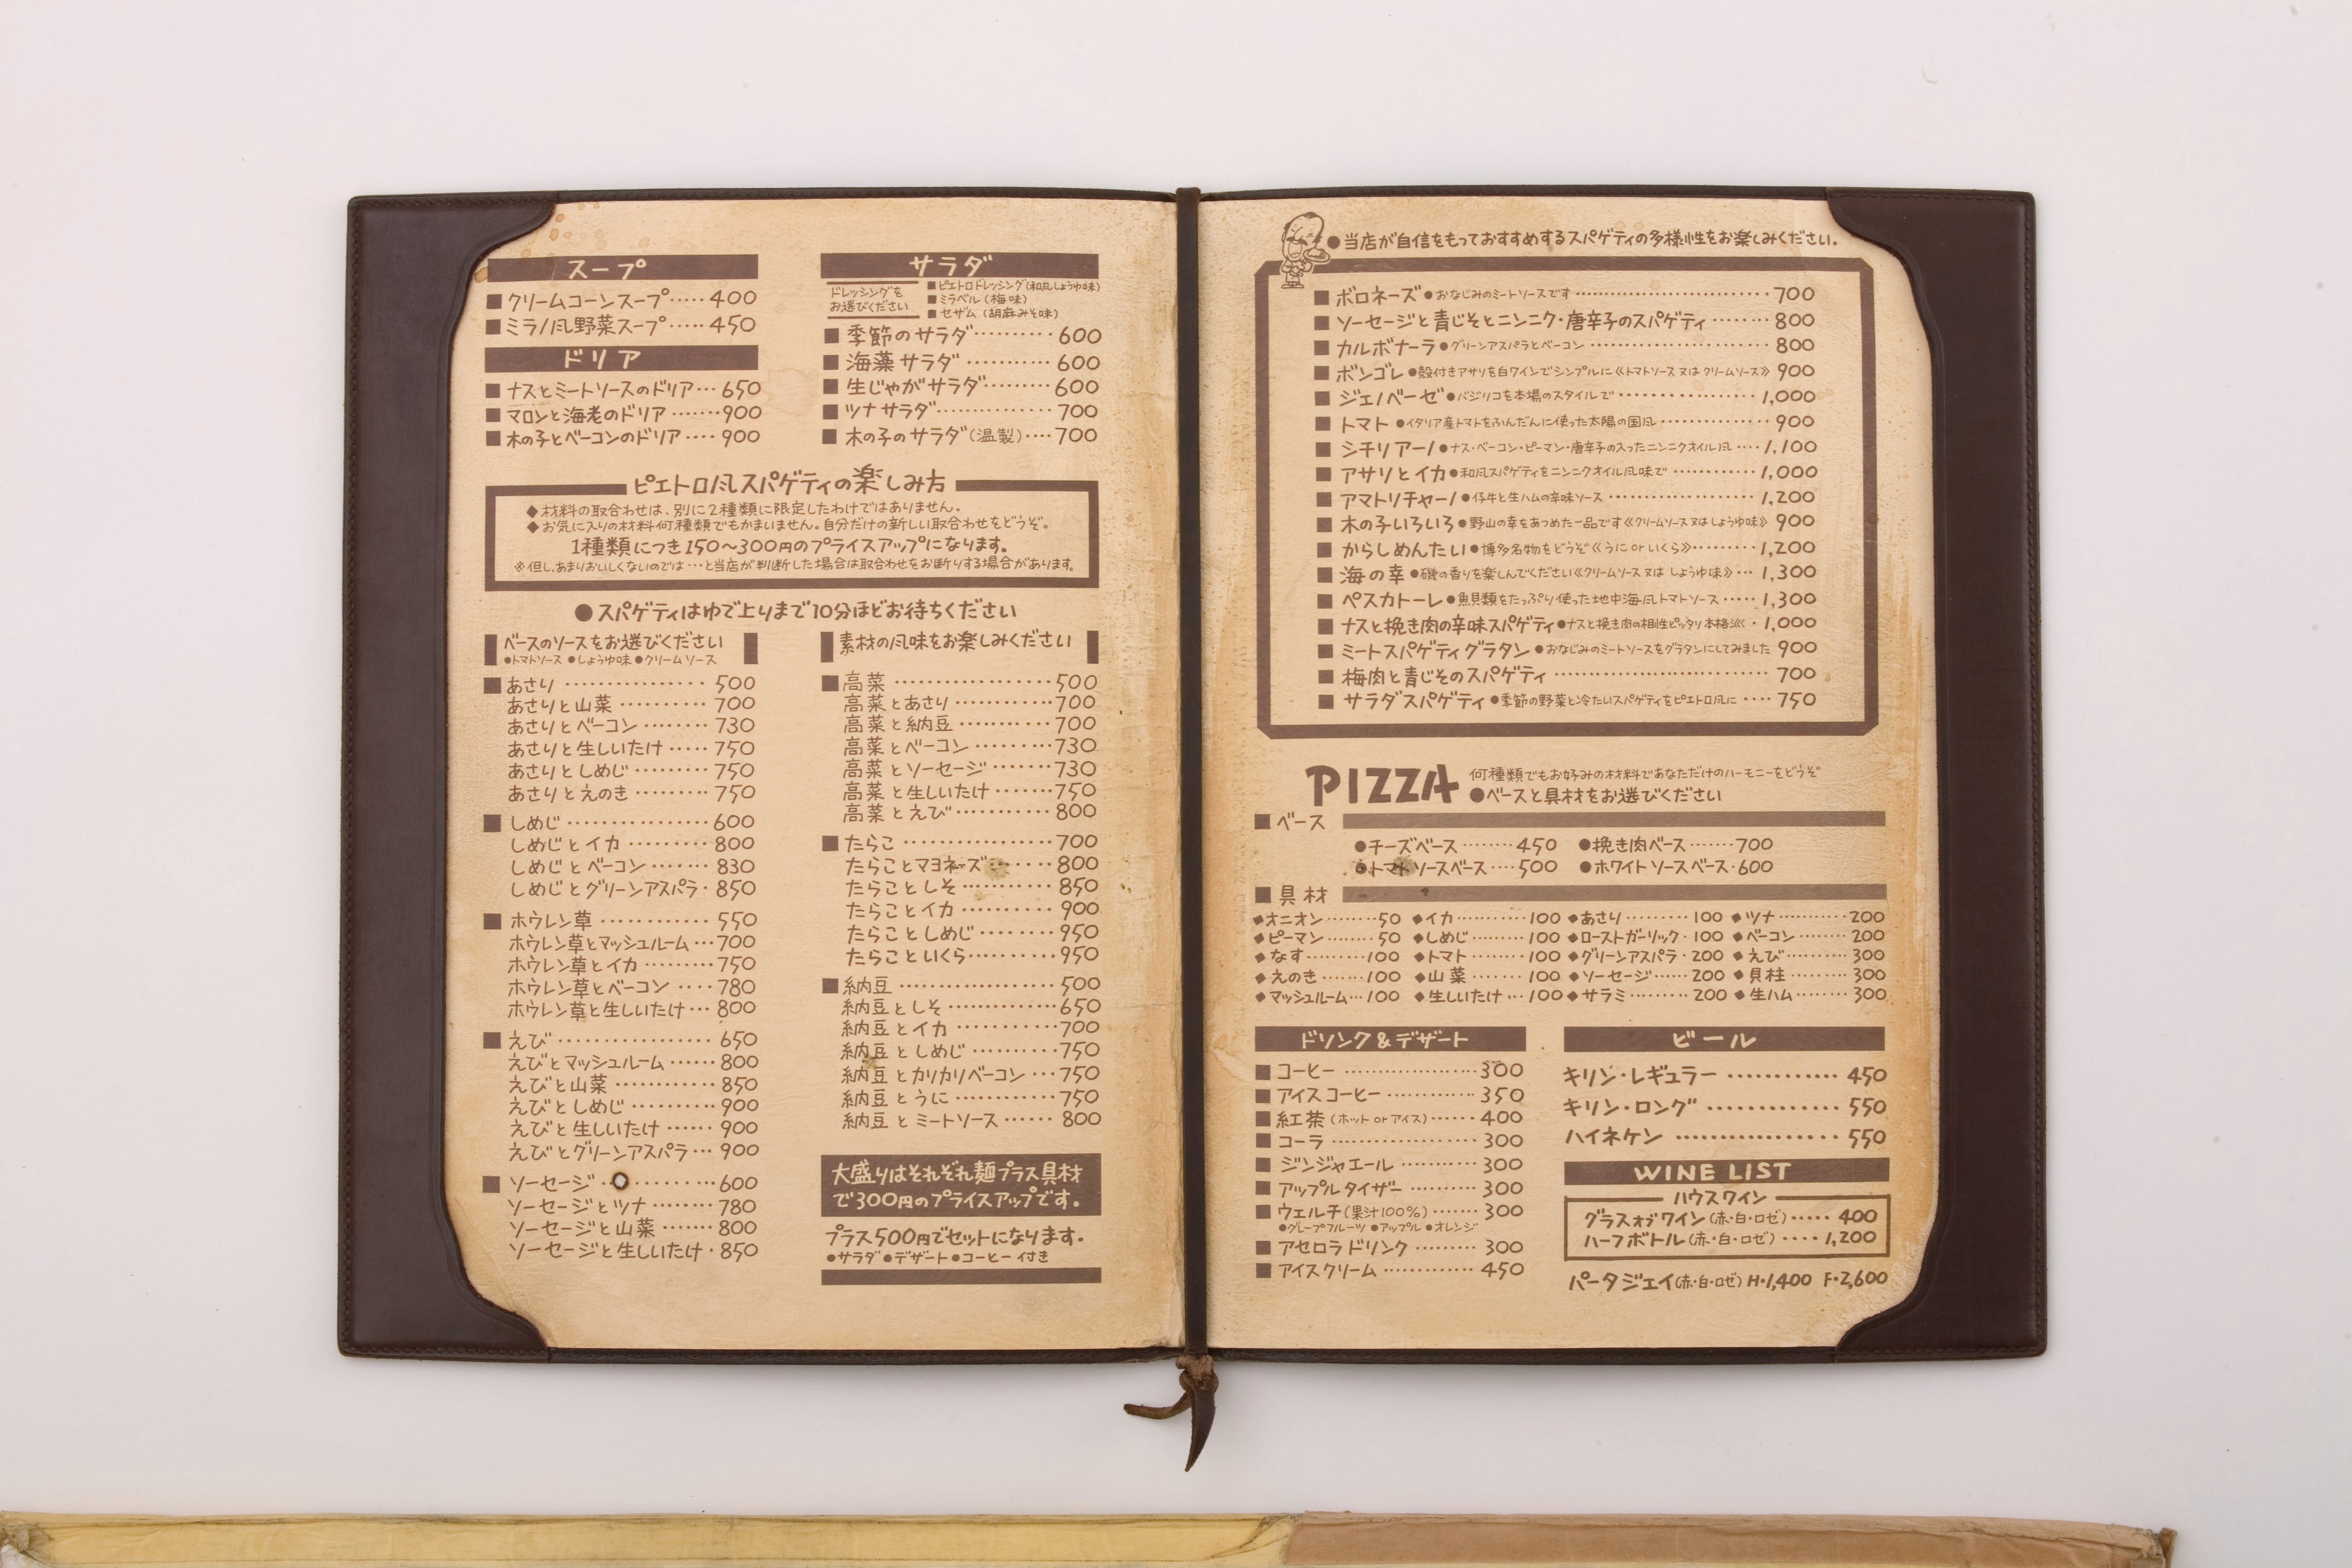 スープ
■クリームコーンスープ……400
■ミラノ風野菜スープ……450
ドリア
■ナスとミートソースのドリア…650
■マロンと海老のドリア……900
■木の子とベーコンのドリア……900
サラダ
ドレッシングを
お選びください
■ピエトロドレッシング(和風しょうゆ味)
■ミラベル(梅味)
■セザム(胡麻みそ味)
■季節のサラダ………600
■海藻サラダ………600
■生じゃがサラダ………600
■ツナサラダ………700
■木の子のサラダ(温製)……700
ピエトロ風スパゲティの楽しみ方
◆材料の取合わせは、別に2種類に限定したわけではありません。
◆お気に入りの材料何種類でもかまいません。自分だけの新しい取合わせをどうぞ。
1種類につき150〜300円のプライスアップになります。
※但し、あまりおいしくないのでは…と当店が判断した場合は取合わせをお断りする場合があります。
●スパゲティはゆで上りまで10分ほどお待ちください
ベースのソースをお選びください
●トマトソース●しょうゆ味●クリームソース
■あさり………500
あさりと山菜………700
あさりとベーコン………730
あさりと生しいたけ……750
あさりとしめじ………750
あさりとえのき………750
■しめじ………600
しめじとイカ………800
しめじとベーコン………830
しめじとグリーンアスパラ・850
■ホウレン草………550
ホウレン草とマッシュルーム…700
ホウレン草とイカ………750
ホウレン草とベーコン……780
ホウレン草と生しいたけ…800
■えび………650
えびとマッシュルーム……800
えびと山菜………850
えびとしめじ………900
えびと生しいたけ……900
えびとグリーンアスパラ…900
■ソーセージ………600
ソーセージとツナ………780
ソーセージと山菜……800
ソーセージと生しいたけ・850
素材の風味をお楽しみください
■高菜………500
高菜とあさり………700
高菜と納豆………700
高菜とベーコン………730
高菜とソーセージ……730
高菜と生しいたけ……750
高菜とえび………800
■たらこ………700
たらことマヨネーズ……800
たらことしそ………850
たらことイカ………900
たらことしめじ………950
たらこといくら………950
■納豆………500
納豆としそ………650
納豆とイカ………700
納豆としめじ………750
納豆とカリカリベーコン…750
納豆とうに………750
納豆とミートソース……800
大盛りはそれぞれ麺プラス具材
で300円のプライスアップです。
プラス500円でセットになります。
●サラダ●デザート●コーヒー付き
●当店が自信をもっておすすめするスパゲティの多様性をお楽しみください。
■ボロネーズ●おなじみのミートソースです………700
■ソーセージと青じそとニンニク・唐辛子のスパゲティ………800
■カルボナーラ●グリーンアスパラとベーコン………800
■ボンゴレ●殻付きアサリを白ワインでシンプルに《トマトソース又はクリームソース》900
■ジェノベーゼ●バジリコを本場のスタイルで………1,000
■トマト●イタリア産トマトをふんだんに使った太陽の国風………900
■シチリアーノ●ナス・ベーコン・ピーマン・唐辛子の入ったニンニクオイル風……1,100
■アサリとイカ●和風スパゲティをニンニクオイル風味で………1,000
■アマトリチャーノ●仔牛と生ハムの辛味ソース………1,200
■木の子いろいろ●野山の幸をあつめた一品です《クリームソース又はしょうゆ味》900
■からしめんたい●博多名物をどうぞ《うにorいくら》………1,200
■海の幸●磯の香りを楽しんでください《クリームソース又はしょうゆ味》…1,300
■ペスカトーレ●魚貝類をたっぷり使った地中海風トマトソース……1,300
■ナスと挽き肉の辛味スパゲティ●ナスと挽き肉の相性ピッタリ本格派・1,000
■ミートスパゲティグラタン●おなじみのミートソースをグラタンにしてみました900
■梅肉と青じそのスパゲティ………700
■サラダスパゲティ●季節の野菜と冷たいスパゲティをピエトロ風に……750
PIZZA
何種類でもお好みの材料であなただけのハーモニーをどうぞ
●ベースと具材をお選びください
■ベース
●チーズベース………450 ●挽き肉ベース………700
●トマトソースベース……500 ●ホワイトソースベース・600
■具材
◆オニオン………50 ◆イカ………100 ◆あさり………100 ◆ツナ………200
◆ピーマン………50 ◆しめじ………100 ◆ローストガーリック・100 ◆ベーコン………200
◆なす………100 ◆トマト………100 ◆グリーンアスパラ・200 ◆えび………300
◆えのき………100 ◆山菜………100 ◆ソーセージ……200 ◆貝柱………300
◆マッシュルーム…100 ◆生しいたけ…100 ◆サラミ………200 ◆生ハム………300
ドリンク&デザート
■コーヒー………300
■アイスコーヒー………350
■紅茶(ホットorアイス)……400
■コーラ………300
■ジンジャエール………300
■アップルタイザー………300
■ウェルチ(果汁100%)……300
●グレープフルーツ●アップル●オレンジ
■アセロラドリンク………300
■アイスクリーム………450
ビール
キリン・レギュラー………450
キリン・ロング………550
ハイネケン………550
WINE LIST
ハウスワイン
グラスオブワイン(赤・白・ロゼ)……400
ハーフボトル(赤・白・ロゼ)……1,200
パータジェイ(赤・白・ロゼ) H・1,400 F・2,600